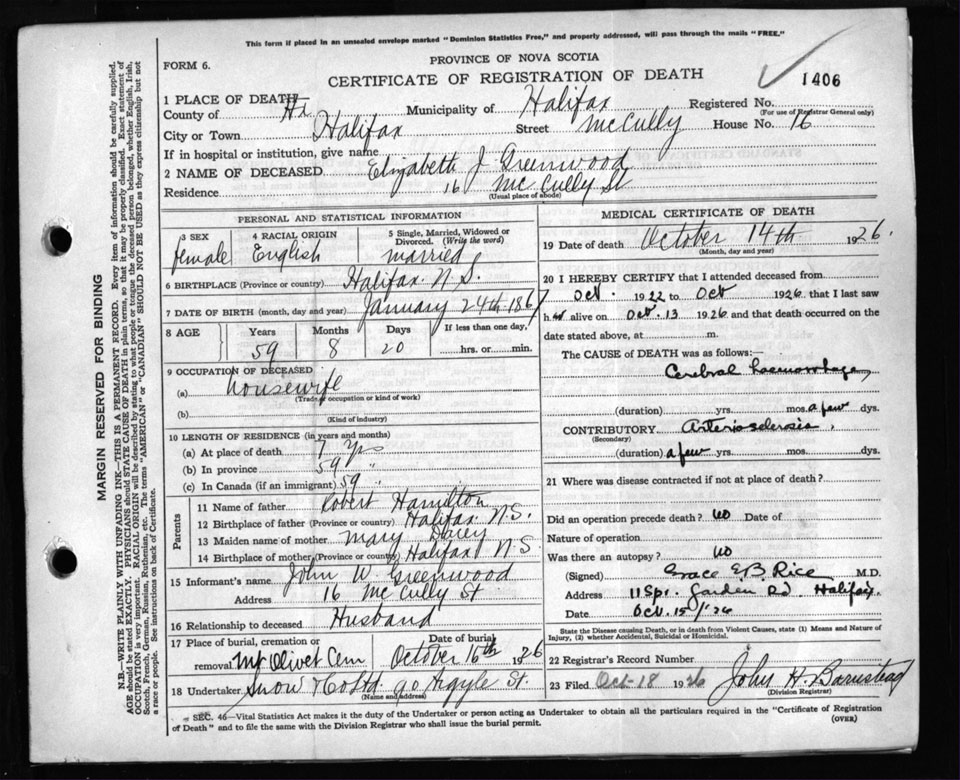 This form if placed in an unsealed envelope marked "Dominion Statistics Free," and properly addressed, will pass through the mails "FREE."
FORM 6.
PROVINCE OF NOVA SCOTIA
CERTIFICATE OF REGISTRATION OF DEATH
1406
1 PLACE OF DEATH
County of Hx Municipality of Halifax Registered No.
(For use of Registrar General only)
City or Town Halifax Street McCully House No. 16
If in hospital or institution, give name
2 NAME OF DECEASED Elizabeth J Greenwood
Residence 16 McCully St
(Usual place of abode)
PERSONAL AND STATISTICAL INFORMATION
3 SEX 4 RACIAL ORIGIN 5 Single, Married, Widowed or Divorced. (Write the word)
female English married
6 BIRTHPLACE (Province or country) Halifax N.S.
7 DATE OF BIRTH (month, day and year) January 24th 1867
8 AGE Years Months Days If less than one day,
59 8 20 hrs. or min.
9 OCCUPATION OF DECEASED
(a) housewife
(Trade, occupation or kind of work)
(b)
(Kind of industry)
10 LENGTH OF RESIDENCE (in years and months)
(a) At place of death 7 yrs
(b) In province 59 "
(c) In Canada (if an immigrant) 59 "
Parents
11 Name of father Robert Hamilton
12 Birthplace of father (Province or country) Halifax N.S.
13 Maiden name of mother Mary
14 Birthplace of mother (Province or country) Halifax N S
15 Informant's name John W Greenwood
Address 16 McCully St
16 Relationship to deceased Husband
17 Place of burial, cremation or removal Mt Olivet Cem Date of burial October 16th 1926
18 Undertaker Snow & Co Ltd 90 Argyle St.
(Name and address)
MEDICAL CERTIFICATE OF DEATH
19 Date of death October 14th 1926.
(Month, day and year)
20 I HEREBY CERTIFY that I attended deceased from
Oct. 1922 to Oct 1926 that I last saw
her alive on Oct. 13 1926 and that death occurred on the
date stated above, at m.
The CAUSE OF DEATH was as follows:—
Cerebral haemorrhage,
(duration) yrs. mos. a few dys.
CONTRIBUTORY Arteriosclerosis,
(Secondary)
(duration) a few yrs. mos. dys.
21 Where was disease contracted if not at place of death?
Did an operation precede death? no Date of
Nature of operation
Was there an autopsy? no
(Signed) Grace E.B. Rice M.D.
Address 11 Spr. Garden Rd. Halifax.
Date Oct. 15/'26
State the Disease causing Death, or in death from Violent Causes, state (1) Means and Nature of Injury, (2) whether Accidental, Suicidal or Homicidal.
22 Registrar's Record Number
23 Filed Oct-18 1926 John H. Barnstead
(Division Registrar)
SEC. 46—Vital Statistics Act makes it the duty of the Undertaker or person acting as Undertaker to obtain all the particulars required in the "Certificate of Registration
of Death" and to file the same with the Division Registrar who shall issue the burial permit.
(OVER)
MARGIN RESERVED FOR BINDING
N.B.—WRITE PLAINLY WITH UNFADING INK—THIS IS A PERMANENT RECORD. Every item of information should be carefully supplied.
AGE should be stated EXACTLY. PHYSICIANS should STATE CAUSE OF DEATH in plain terms, so that it may be properly classified. Exact statement of
OCCUPATION is very important. RACIAL ORIGIN will be described by stating to what people or tongue the deceased person belonged, whether English, Irish,
Scotch, French, German, Russian, Ruthenian, etc. The terms "AMERICAN" or "CANADIAN" SHOULD NOT BE USED as they express citizenship but not
a race or people. See instructions on back of Certificate.